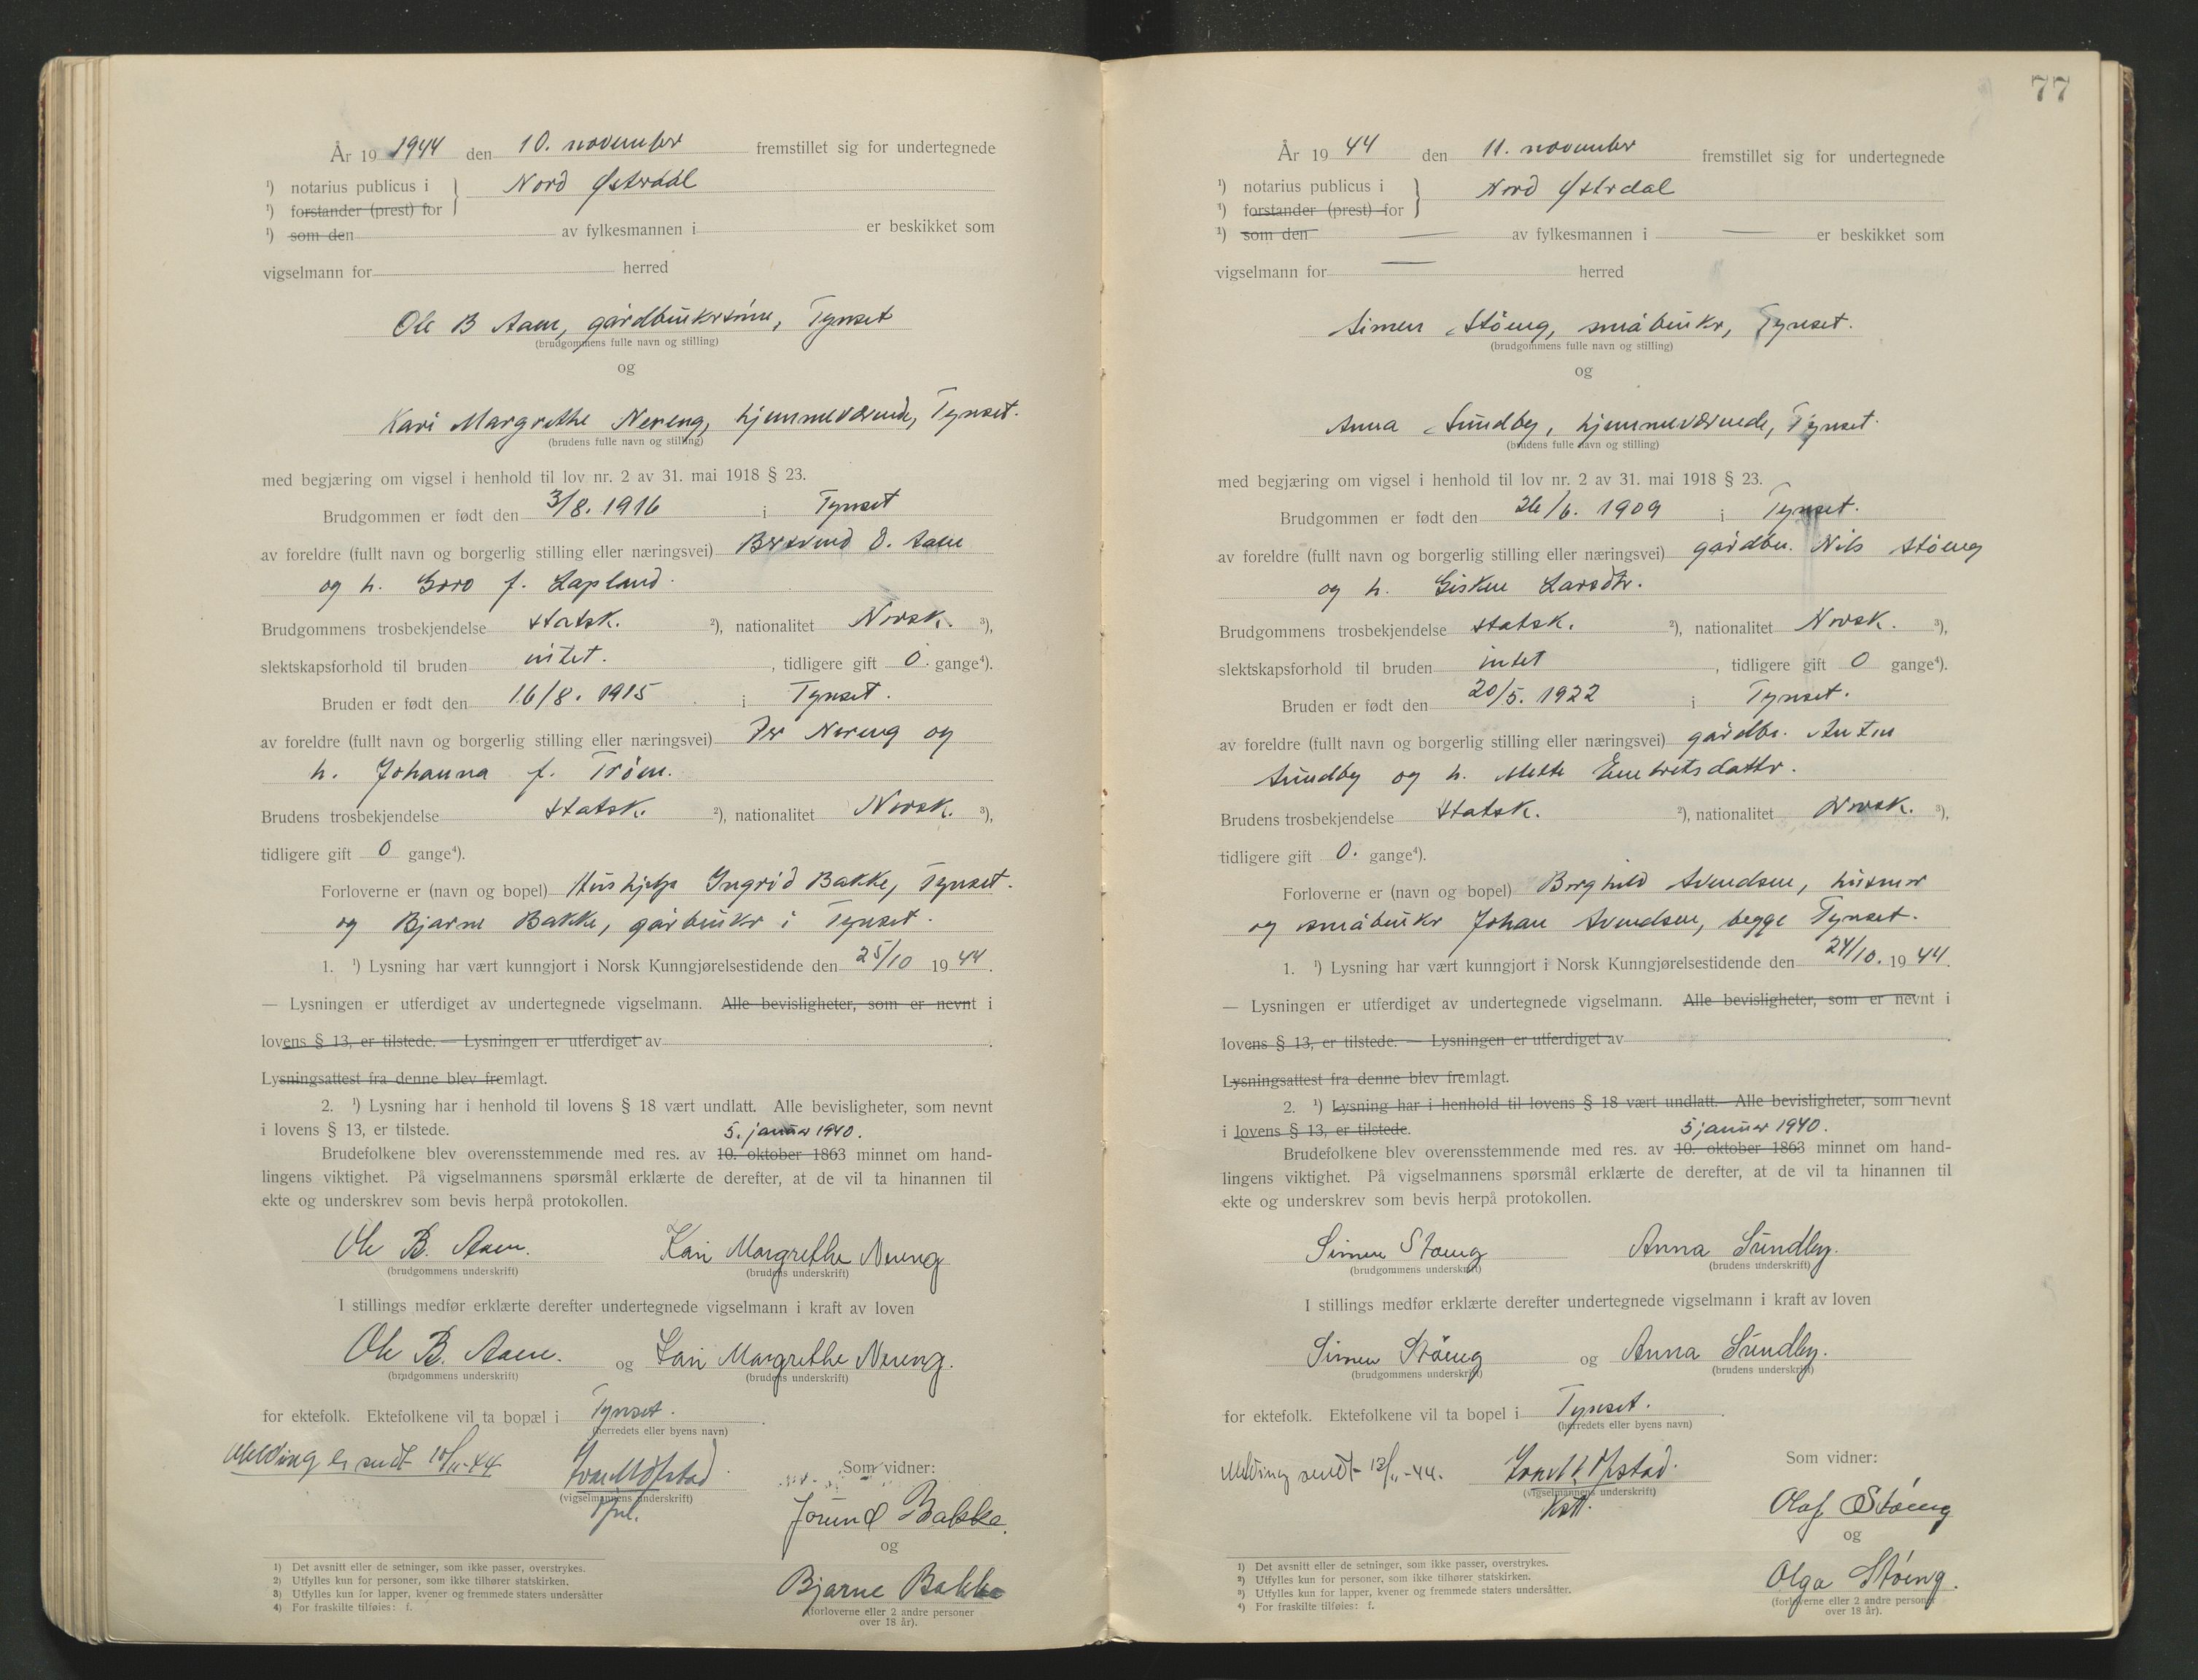 År 19 1944 den 10. november fremstillet sig for undertegnede
¹) notarius publicus i } Nord Østerdal
¹) forstander (prest) for
¹) som den av fylkesmannen i er beskikket som
vigselmann for herred
Ole B Aaen, gårdbrukersønn, Tynset
(brudgommens fulle navn og stilling)
og
Kari Margrethe Nereng, hjemmeværende, Tynset.
(brudens fulle navn og stilling)
med begjæring om vigsel i henhold til lov nr. 2 av 31. mai 1918 § 23.
Brudgommen er født den 3/8. 1916 i Tynset
av foreldre (fullt navn og borgerlig stilling eller næringsvei) Bersvend O. Aaen
og h. Goro f. Lapland.
Brudgommens trosbekjendelse statsk. ²), nationalitet Norsk. ³),
slektskapsforhold til bruden intet. , tidligere gift 0. gange⁴).
Bruden er født den 16/8. 1915 i Tynset.
av foreldre (fullt navn og borgerlig stilling eller næringsvei) Per Nereng og
h. Johanna f. Trøen.
Brudens trosbekjendelse statsk. ²), nationalitet Norsk. ³),
tidligere gift 0 gange⁴).
Forloverne er (navn og bopel) Hushjelp Ingrid Bakke, Tynset.
og Bjarne Bakke, gårbruker i Tynset.
1. ¹) Lysning har vært kunngjort i Norsk Kunngjørelsestidende den 25/10 19 44.
— Lysningen er utferdiget av undertegnede vigselmann. Alle bevisligheter, som er nevnt i
lovens § 13, er tilstede. — Lysningen er utferdiget av .
Lysningsattest fra denne blev fremlagt.
2. ¹) Lysning har i henhold til lovens § 18 vært undlatt. Alle bevisligheter, som nevnt
i lovens § 13, er tilstede. 5. januar 1940.
Brudefolkene blev overensstemmende med res. av 10. oktober 1863 minnet om hand-
lingens viktighet. På vigselmannens spørsmål erklærte de derefter, at de vil ta hinannen til
ekte og underskrev som bevis herpå protokollen.
Ole B. Aaen. Kari Margrethe Nereng
(brudgommens underskrift) (brudens underskrift)
I stillings medfør erklærte derefter undertegnede vigselmann i kraft av loven
Ole B. Aaen. og Kari Margrethe Nereng.
(brudgommens underskrift) (brudens underskrift)
for ektefolk. Ektefolkene vil ta bopæl i Tynset.
(herredets eller byens navn)
Melding er sendt 10/11-44
(vigselmannens underskrift)
Som vidner:
Jorund Bakke.
og
Bjarne Bakke
(forloverne eller 2 andre personer
over 18 år).
1) Det avsnitt eller de setninger, som ikke passer, overstrykes.
2) Utfylles kun for personer, som ikke tilhører statskirken.
3) Utfylles kun for lapper, kvener og fremmede staters undersåtter
4) For fraskilte tilføies: f.
77
År 19 44 den 11. november fremstillet sig for undertegnede
¹) notarius publicus i } Nord Østerdal
¹) forstander (prest) for
¹) som den — av fylkesmannen i — er beskikket som
vigselmann for — herred
Simen Støeng, småbruker, Tynset.
(brudgommens fulle navn og stilling)
og
Anna Sundby, hjemmeværende, Tynset.
(brudens fulle navn og stilling)
med begjæring om vigsel i henhold til lov nr. 2 av 31. mai 1918 § 23.
Brudgommen er født den 26/6. 1909 i Tynset.
av foreldre (fullt navn og borgerlig stilling eller næringsvei) gårdbr. Nils Støeng
og h. Gisken Larsdtr.
Brudgommens trosbekjendelse statsk. ²), nationalitet Norsk. ³),
slektskapsforhold til bruden intet , tidligere gift 0 gange⁴).
Bruden er født den 20/5. 1922 i Tynset.
av foreldre (fullt navn og borgerlig stilling eller næringsvei) gårdbr. Anton
Sundby og h. Mette Embretsdatter.
Brudens trosbekjendelse statsk. ²), nationalitet Norsk. ³),
tidligere gift 0. gange⁴).
Forloverne er (navn og bopel) Borghild Svendsen, husmor
og småbruker Johan Svendsen, begge Tynset.
1. ¹) Lysning har vært kunngjort i Norsk Kunngjørelsestidende den 24/10. 19 44.
— Lysningen er utferdiget av undertegnede vigselmann. Alle bevisligheter, som er nevnt i
lovens § 13, er tilstede. — Lysningen er utferdiget av .
Lysningsattest fra denne blev fremlagt.
2. ¹) Lysning har i henhold til lovens § 18 vært undlatt. Alle bevisligheter, som nevnt
i lovens § 13, er tilstede. 5 januar 1940.
Brudefolkene blev overensstemmende med res. av 10. oktober 1863 minnet om hand-
lingens viktighet. På vigselmannens spørsmål erklærte de derefter, at de vil ta hinannen til
ekte og underskrev som bevis herpå protokollen.
Simen Støeng Anna Sundby.
(brudgommens underskrift) (brudens underskrift)
I stillings medfør erklærte derefter undertegnede vigselmann i kraft av loven
Simen Støeng og Anna Sundby.
(brudgommens underskrift) (brudens underskrift)
for ektefolk. Ektefolkene vil ta bopel i Tynset.
(herredets eller byens navn)
Melding sendt 13/11-44.
(vigselmannens underskrift)
Som vidner:
Olaf Støeng
og
Olga Støeng.
(forloverne eller 2 andre personer
over 18 år).
¹) Det avsnitt eller de setninger, som ikke passer, overstrykes.
²) Utfylles kun for personer, som ikke tilhører statskirken.
³) Utfylles kun for lapper, kvener og fremmede staters undersåtter.
⁴) For fraskilte tilføies: f.